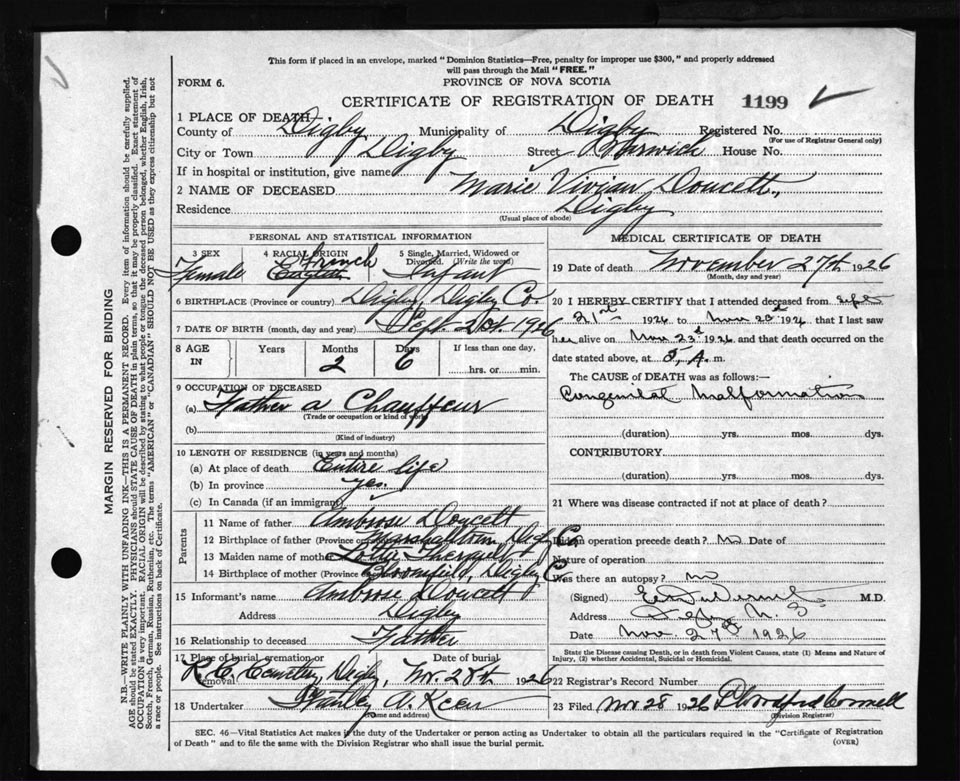 This form if placed in an envelope, marked "Dominion Statistics—Free, penalty for improper use $300," and properly addressed
will pass through the Mail "FREE."
FORM 6.
PROVINCE OF NOVA SCOTIA
CERTIFICATE OF REGISTRATION OF DEATH 1199
1 PLACE OF DEATH
County of Digby Municipality of Digby Registered No.
(For use of Registrar General only)
City or Town Digby Street Warwick House No.
If in hospital or institution, give name
2 NAME OF DECEASED Marie Vivian Doucett,
Residence Digby
(Usual place of abode)
PERSONAL AND STATISTICAL INFORMATION
3 SEX 4 RACIAL ORIGIN 5 Single, Married, Widowed or Divorced. (Write the word)
Female French Infant
6 BIRTHPLACE (Province or country) Digby, Digby Co.
7 DATE OF BIRTH (month, day and year) Sept. 21st. 1926
8 AGE IN Years Months Days If less than one day,
2 6 hrs. or min.
9 OCCUPATION OF DECEASED
(a) Father a Chauffeur
(Trade or occupation or kind of work)
(b)
(Kind of industry)
10 LENGTH OF RESIDENCE (in years and months)
(a) At place of death Entire life
(b) In province yes.
(c) In Canada (if an immigrant)
Parents
11 Name of father Ambrose Doucett
12 Birthplace of father (Province or Marshalltown, Digby Co
13 Maiden name of mother Lottie
14 Birthplace of mother (Province Bloomfield, Digby Co
15 Informant's name Ambrose Doucett
Address Digby
16 Relationship to deceased Father
17 Place of burial, cremation or removal Date of burial
R.C. Cemetery, Digby, Nov. 28th 1926
18 Undertaker Stanley A. Keen
(Name and address)
MEDICAL CERTIFICATE OF DEATH
19 Date of death November 27th 1926
(Month, day and year)
20 I HEREBY CERTIFY that I attended deceased from Sept
21st 1926 to Nov 23d 1926 that I last saw
her alive on Nov 23d 1926 and that death occurred on the
date stated above, at 5 A. m.
The CAUSE OF DEATH was as follows:—
Congenital Malformation
(duration) yrs. mos. dys.
CONTRIBUTORY.
(duration) yrs. mos. dys.
21 Where was disease contracted if not at place of death?
Did an operation precede death? No Date of
Nature of operation
Was there an autopsy? no
(Signed) M.D.
Address Digby N.S.
Date Nov. 27th 1926
State the Disease causing Death, or in death from Violent Causes, state (1) Means and Nature of Injury, (2) whether Accidental, Suicidal or Homicidal.
22 Registrar's Record Number
23 Filed Nov 28 1926
(Division Registrar)
SEC. 46—Vital Statistics Act makes it the duty of the Undertaker or person acting as Undertaker to obtain all the particulars required in the "Certificate of Registration
of Death" and to file the same with the Division Registrar who shall issue the burial permit.
(OVER)
MARGIN RESERVED FOR BINDING
N.B.—WRITE PLAINLY WITH UNFADING INK—THIS IS A PERMANENT RECORD. Every item of information should be carefully supplied.
AGE should be stated EXACTLY. PHYSICIANS should STATE CAUSE OF DEATH in plain terms, so that it may be properly classified. Exact statement of
OCCUPATION is very important. RACIAL ORIGIN will be described by stating to what people or tongue the deceased person belonged, whether English, Irish,
Scotch, French, German, Russian, Ruthenian, etc. The terms "AMERICAN" or "CANADIAN" SHOULD NOT BE USED as they express citizenship but not
a race or people. See instructions on back of Certificate.